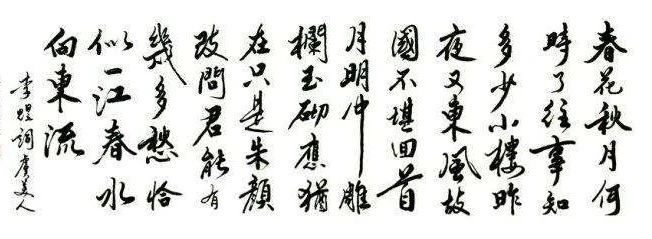 春花秋月何
時了往事知
多少小樓昨
夜又東風故
國不堪回首
月明中雕
欄玉砌應猶
在只是朱顏
改問君能有
幾多愁恰
似一江春水
向東流
李煜詞虞美人